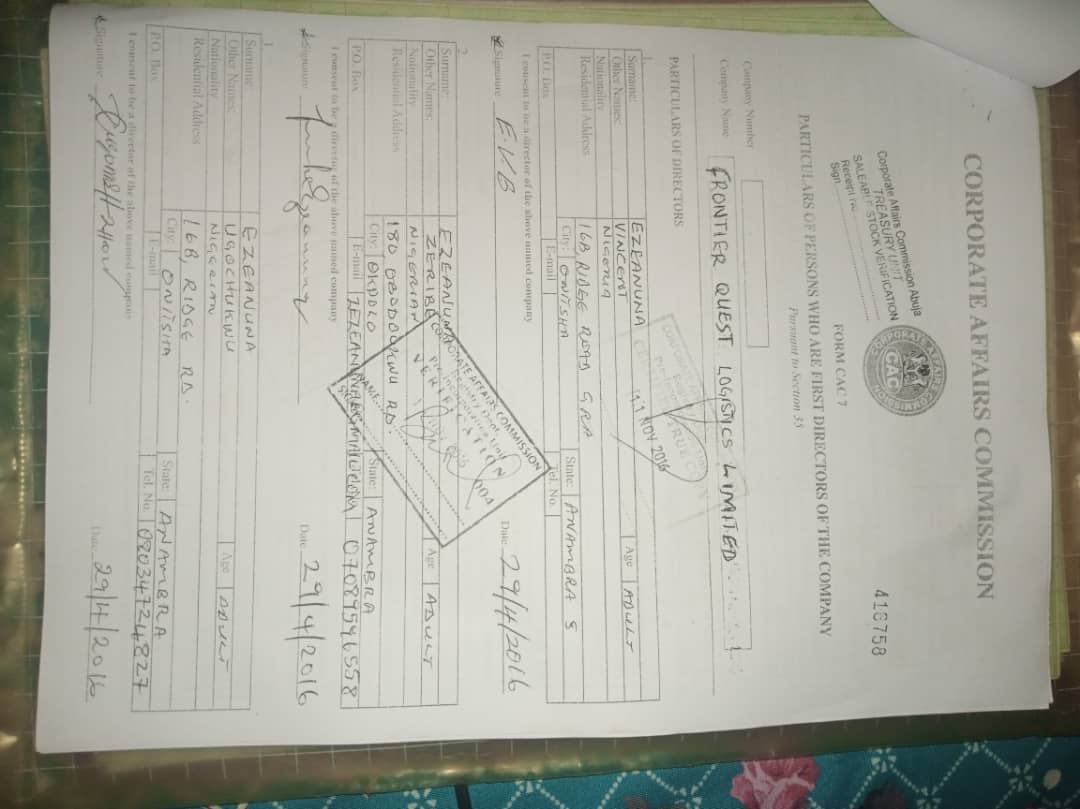 CORPORATE AFFAIRS COMMISSION
Corporate Affairs Commission Abuja
TREASURY UNIT
SALEABLE STOCK VERIFICATION
Receipt No
Sign
CORPORATE AFFAIRS COMMISSION
CAC
416758
FORM CAC 7
PARTICULARS OF PERSONS WHO ARE FIRST DIRECTORS OF THE COMPANY
Pursuant to Section 35
Company Number
Company Name FRONTIER QUEST LOGISTICS LIMITED
PARTICULARS OF DIRECTORS
CERTIFIED TRUE COPY
11 NOV 2016
1.
Surname: EZEANUNA
Other Names: VINCENT Age ADULT
Nationality NIGERIA
Residential Address 16B, RIDGE ROAD GRA
City: ONITSHA State: ANAMBRA S
P.O. Box E-mail Tel. No.
I consent to be a director of the above named company
Signature E.V.B Date 29/4/2016
CORPORATE AFFAIRS COMMISSION
Registry Dept.
Pre-Incorporation Unit
VERIFICATION
004
NAME
SIGN
2.
Surname: EZEANUNA
Other Names: ZERIBE Age ADULT
Nationality NIGERIAN
Residential Address 180 OBODOUKWU RD.
City: OKPOLO State: ANAMBRA
P.O. Box E-mail 07089546558
I consent to be a director of the above named company
Signature Date 29/4/2016
1
Surname EZEANUNA
Other Names: UGOCHUKWU Age ADULT
Nationality NIGERIAN
Residential Address 16B, RIDGE RD.
City: ONITSHA State: ANAMBRA
P.O. Box E-mail Tel. No. 08034724827
I consent to be a director of the above named company
Signature Date 29/4/2016